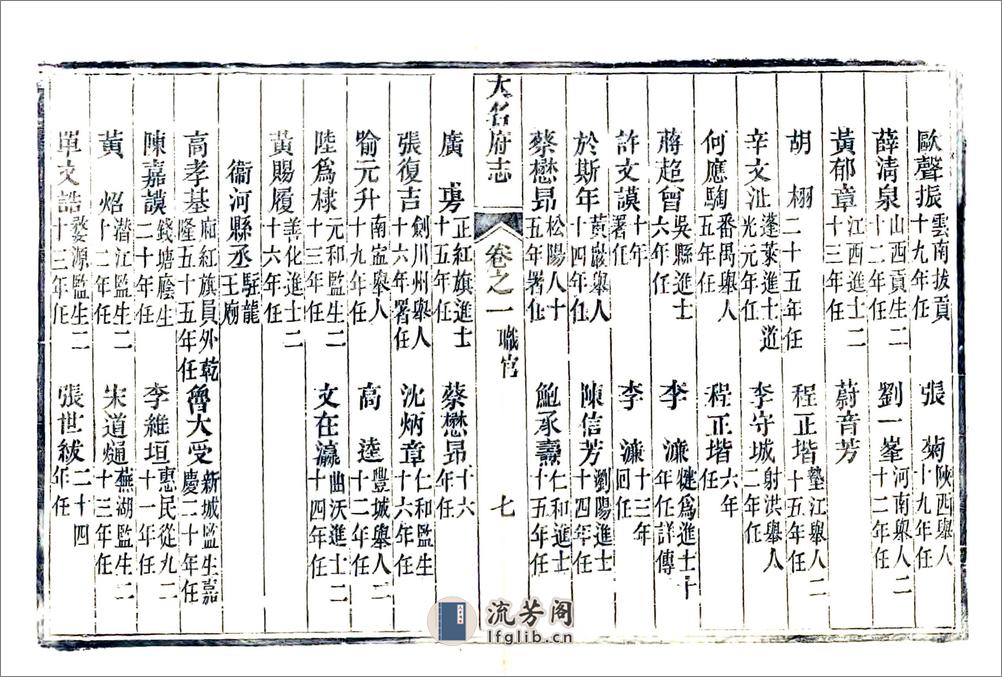 歐聲振雲南拔貢十九年任　張菊陝西舉人十九年任
薛清泉山西貢生二十二年任　劉一峯河南舉人二十二年任
黃郁章江西進士二十三年任　蔚音芳
胡栩二十五年任　程正堦墊江舉人二十五年任
辛文沚蓬萊進士道光元年任　李守城射洪舉人二年任
何應騊番禺舉人五年任　程正堦六年任
蔣超曾吳縣進士六年任　李濂犍爲進士十年任詳傳
許文謨十年署任　李濂十三年回任
於斯年黃巖舉人十四年任　陳信芳瀏陽進士十四年任
蔡懋昂松陽人十五年署任　鮑承燾仁和進士十五年任
大名府志　卷之一職官　七
廣　正紅旗進士十五年任　蔡懋昂十六年任
張復吉劍川州舉人十六年署任　沈炳章仁和監生十六年任
喻元升南寧舉人十九年任　高逵豐城舉人二十年任
陸爲棣元和監生二十三年任　文在瀛曲沃進士二十四年任
黃賜履善化進士二十六年任
衞河縣丞駐龍王廟
高孝基廂紅旗員外乾隆五十五年任　魯大受新城監生嘉慶二十年任
陳嘉謨錢塘廕生二十年任　李維垣惠民從九二十一年任
黃炤潛江監生二十二年任　宋道爊蕪湖監生二十三年任
單文誥婺源監生二十三年任　張世紱二十四年任
流芳阁
lfglib.cn